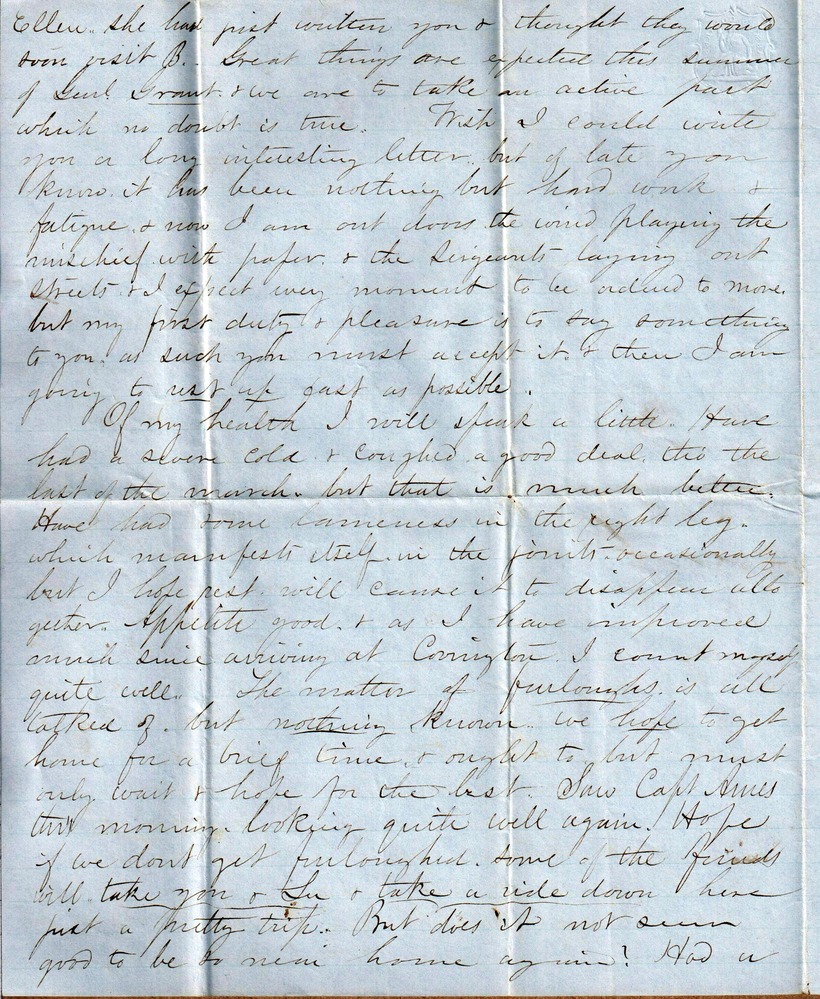 Ellen. she had just written you & thought they would
soon visit B. Great things are expected this summer
of Genl. Grant. & we are to take an active part
which no doubt is true. Wish I could write
you a long interesting letter. but of late you
know. it has been nothing but hard work &
fatigue. & now I am out doors. the wind playing the
mischief with paper. & the Sergeants laying out
streets. & I expect every moment to be ordered to move.
but my first duty & pleasure is to say something
to you. as such you must accept it. & then I am
going to rest up fast as possible.
Of my health I will speak a little. Have
had a severe cold & coughed a good deal. tho the
last of the march. but that is much better.
Have had some lameness in the right leg.
which manifests itself in the joints occasionally
but I hope rest will cause it to disappear alto
gether. Appetite good. & as I have improved
much since arriving at Covington. I count myself
quite well. The matter of furloughs. is all
talked of. but nothing known. we hope to get
home for a brief time & ought to. but must
only wait & hope for the best. Saw Capt Ames
this morning. looking quite well again. Hope
if we dont get furloughed. some of the friends
will take you & Lu & take a ride down here
just a pretty trip. But does it not seem
good to be so near home again? Had a